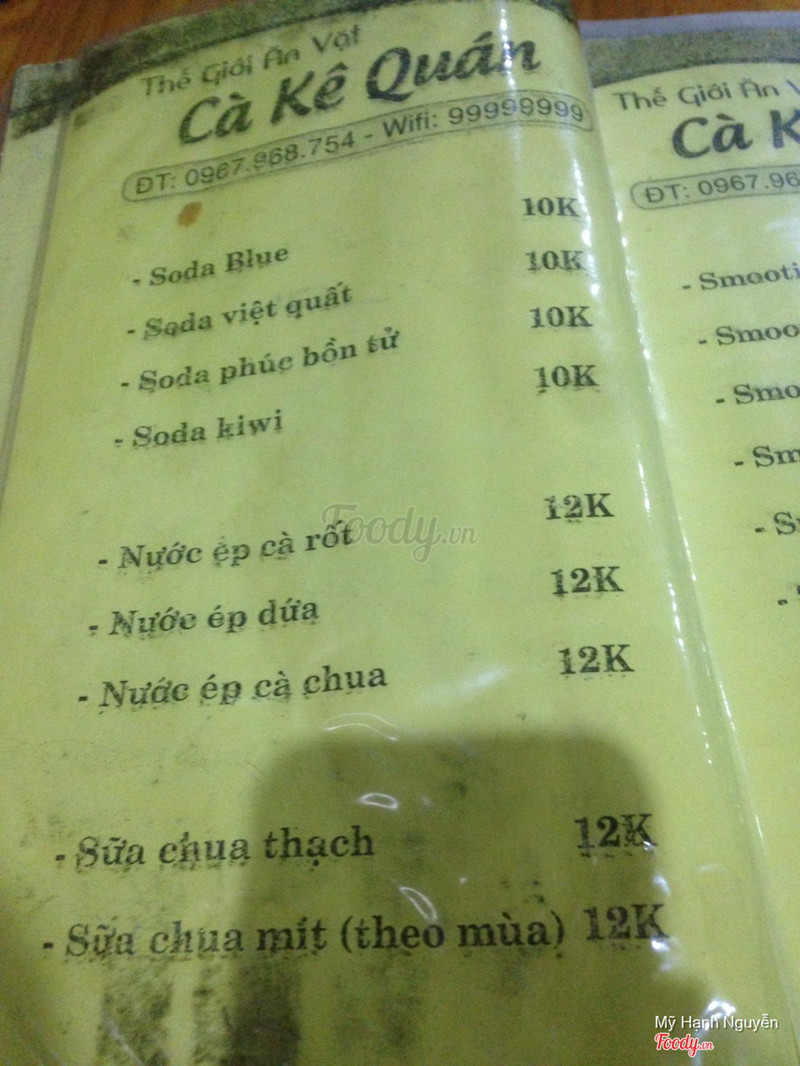 Thế Giới Ăn Vặt
Cà Kê Quán
ĐT: 0967.968.754 - Wifi: 99999999
- Soda Blue 10K
- Soda việt quất 10K
- Soda phúc bồn tử 10K
- Soda kiwi 10K
- Nước ép cà rốt 12K
- Nước ép dứa 12K
- Nước ép cà chua 12K
- Sữa chua thạch 12K
- Sữa chua mít (theo mùa) 12K
Thế Giới Ăn V
Cà K
ĐT: 0967.96
- Smooti
- Smoo
- Smo
- Sm
- S
Foody.vn
Mỹ Hạnh Nguyễn
Foody.vn